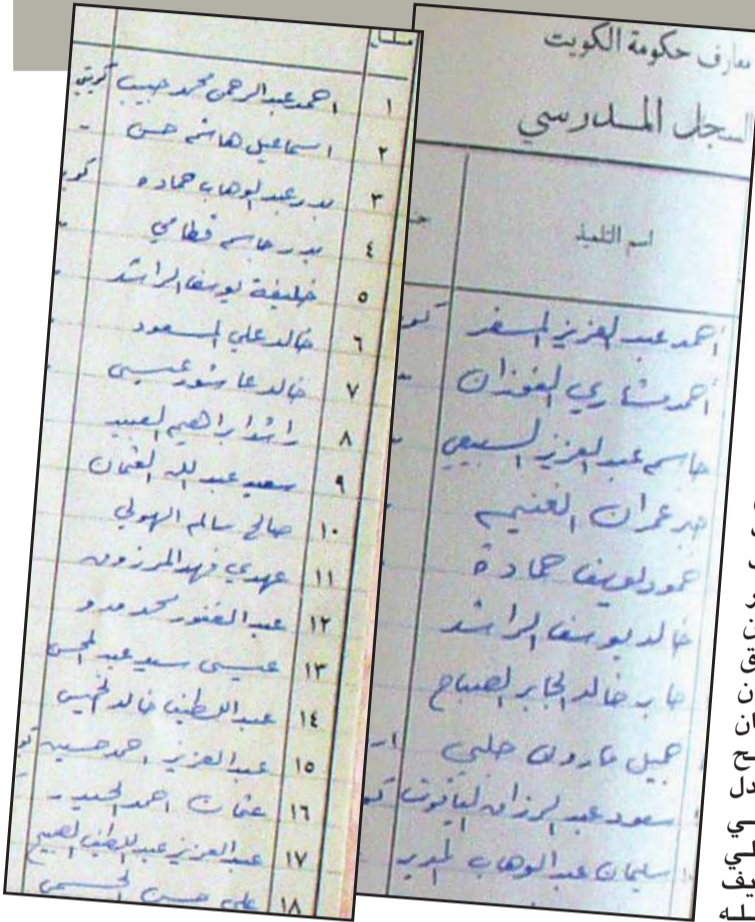 معارف حكومة الكويت
السجل المدرسي
اسم التلميذ
أحمد عبد العزيز المسفر
أحمد مشاري الفوزان
جاسم عبد العزيز السبيعي
جبر عمران الغنيم
حمود يوسف حمادة
خالد يوسف الراشد
جابر خالد الجابر الصباح
جميل فارون حلبي
سعود عبد الرزاق الياقوت
سليمان عبد الوهاب المدير
مسلسل
١ احمد عبد الرحمن محمد حبيب كويتي
٢ اسماعيل هاشم حسن
٣ بدر عبد الوهاب حماده
٤ بدر جاسم قطامي
٥ خليفة يوسف الراشد
٦ خالد علي المسعود
٧ خالد عاشور عيسى
٨ راشد ابراهيم العبيد
٩ سعيد عبد الله العثمان
١٠ صالح سالم الهولي
١١ مهدي فهد المرزوق
١٢ عبد الغفور محمد مدو
١٣ عيسى سيد عبد المحسن
١٤ عبد اللطيف خالد
١٥ عبد العزيز احمد حسين
١٦ عثمان احمد
١٧ عبد العزيز عبد اللطيف
١٨ علي حسن